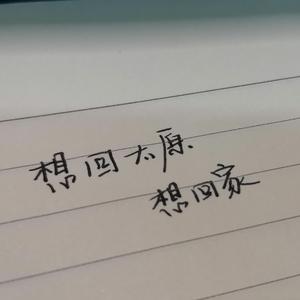 想回太原
想回家